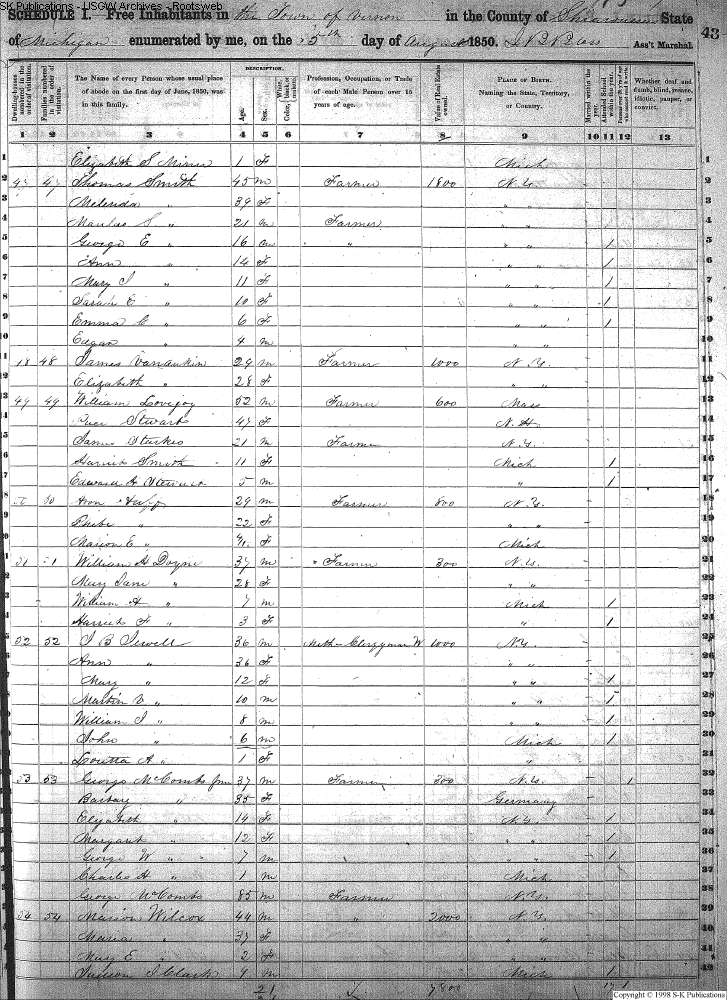 SK Publications - USGW Archives - Rootsweb
43
SCHEDULE I.—Free Inhabitants in the Town of Vernon in the County of State
of Michigan enumerated by me, on the 5th day of August 1850. Ass't Marshal
Dwelling-houses numbered in the order of visitation. Families numbered in the order of visitation. The Name of every Person whose usual place of abode on the first day of June, 1850, was in this family. DESCRIPTION. Age. Sex. Color, White, black, or mulatto. Profession, Occupation, or Trade of each Male Person over 15 years of age. Value of Real Estate owned. PLACE OF BIRTH. Naming the State, Territory, or Country. Married within the year. Attended School within the year. Persons over 20 y'rs of age who cannot read & write. Whether deaf and dumb, blind, insane, idiotic, pauper, or convict.
1 2 3 4 5 6 7 8 9 10 11 12 13
1 Elizabeth S Miner 1 F Mich
2 47 47 Thomas Smith 45 m Farmer 1800 N.Y. 2
3 Melinda " 39 F " " 3
4 S. " 21 m Farmer " " 4
5 George E " 16 m " " " 1 5
6 Ann " 14 F " " 1 6
7 Mary J " 11 F " " 1 7
8 Sarah E " 10 F " " 1 8
9 Emma C " 6 F " " 1 9
10 Edgar " 4 m " " 10
11 48 48 James Vanaukin 29 m Farmer 1000 N.Y. 11
12 Elizabeth " 28 F " " 12
13 49 49 William Lovejoy 52 m Farmer 600 Mass 13
14 Stewart 47 F N.H. 14
15 James Sturkes 21 m Farmer N.Y. 15
16 Harriet Smith 11 F Mich 1 16
17 Edward A Stewart 5 m " 1 17
18 50 Huff 29 m Farmer 800 N.Y. 18
19 Phebe " 22 F " " 19
20 Marion E " F Mich 20
21 51 51 William H Doyne 37 m Farmer 300 N.Y. 21
22 Mary Jane " 28 F " " 22
23 William H " 7 m Mich 1 23
24 Harriet F " 3 F " 1 24
25 52 52 J B Jewell 36 m Meth - Clergyman W 1000 N.Y. 25
26 Ann " 36 F " " 26
27 Mary " 12 F " " 1 27
28 Martin V " 10 m " " 1 28
29 William J " 8 m " " 1 29
30 John " 6 m Mich 1 30
31 Loretta A " 1 F " 31
32 53 53 George McCombs Jnr 37 m Farmer 300 N.Y. 1 32
33 Barbary " 35 F Germany 33
34 Elizabeth " 14 F N.Y. 1 34
35 Margaret " 12 F " " 1 35
36 George W " 7 m " " 1 36
37 Charles H " 1 m Mich 37
38 George McCombs 85 m Farmer N.Y. 38
39 54 54 Marion Wilcox 44 m " 2000 N.Y. 39
40 Maria " 37 F " " 40
41 Mary E " 2 F " " 41
42 Judson J Clark 9 m Mich 1 42
7800
Copyright © 1998 S-K Publications